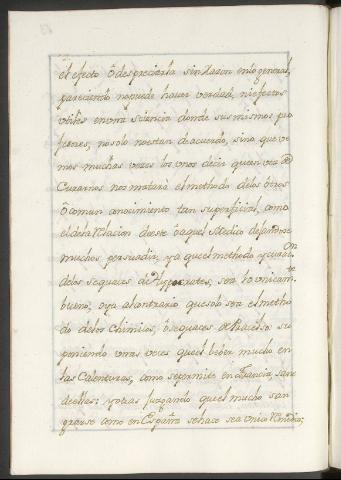 el efecto ô despreciarla sin razon en lo general,
pareciendo no puede haver verdad, ni efectos
utiles en una sciencia donde sus mismos pro
fesores, no solo no estan de acuerdo, sino que ve
mos muchas vezes los unos dezir que en vez de
Curarnos nos matarà el methodo de los otros
ô comun conocimiento tan superficial, como
el de la relacion de este ô aquel Medio dejandose
muchos persuadir, ya que el methodo y curacion
de los sequaces de Hypocrates, sea lo unicamte
bueno, o ya al contrario que solo sea el metho
do de los Chimicos, ô sequaces de Paracelso: su
poniendo unas veces que el beber mucho en
las Calenturas, como se permite en Francia, sane
de ellas: y otras juzgando que el mucho san
grarse como en España se hace sea unico remedio;